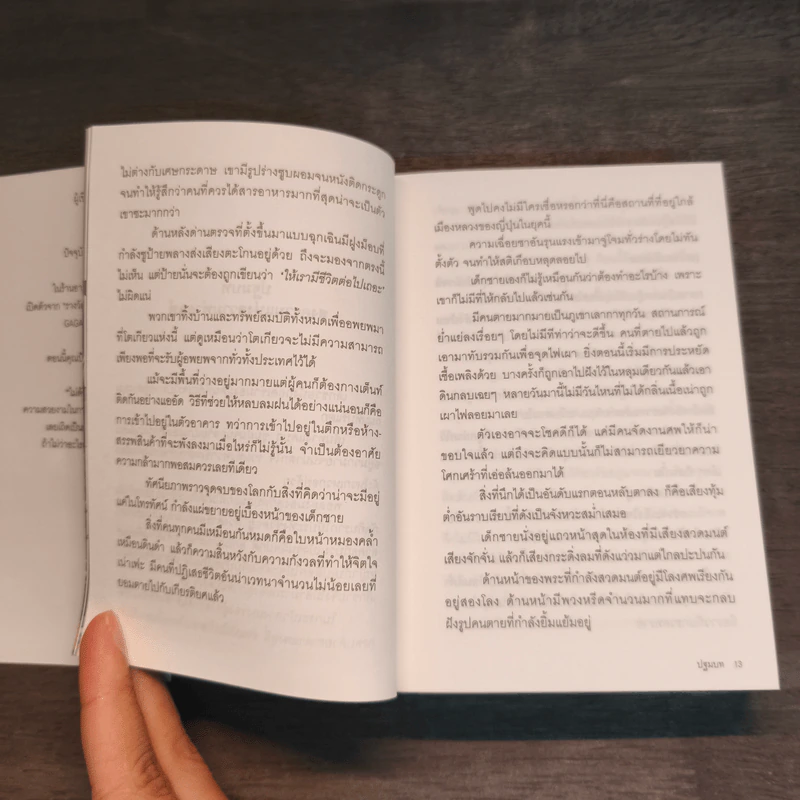 ไม่ต่างกับเศษกระดาษ เขามีรูปร่างซูบผอมจนหนังติดกระดูก
จนทำให้รู้สึกว่าคนที่ควรได้สารอาหารมากที่สุดน่าจะเป็นตัว
เขาซะมากกว่า
ด้านหลังด่านตรวจที่ตั้งขึ้นมาแบบฉุกเฉินมีฝูงม็อบที่
กำลังชูป้ายพลางส่งเสียงตะโกนอยู่ด้วย ถึงจะมองจากตรงนี้
ไม่เห็น แต่ป้ายนั่นจะต้องถูกเขียนว่า "ให้เรามีชีวิตต่อไปเถอะ"
ไม่ผิดแน่
พวกเขาทิ้งบ้านและทรัพย์สมบัติทั้งหมดเพื่ออพยพมา
ที่โตเกียวแห่งนี้ แต่ดูเหมือนว่าโตเกียวจะไม่มีความสามารถ
เพียงพอที่จะรับผู้อพยพจากทั่วทั้งประเทศไว้ได้
แม้จะมีพื้นที่ว่างอยู่มากมายแต่ผู้คนก็ต้องกางเต็นท์
ติดกันอย่างแออัด วิธีที่ช่วยให้หลบลมฝนได้อย่างแน่นอนก็คือ
การเข้าไปอยู่ในตัวอาคาร ทว่าการเข้าไปอยู่ในตึกหรือห้าง-
สรรพสินค้าที่จะพังลงมาเมื่อไหร่ก็ไม่รู้นั้น จำเป็นต้องอาศัย
ความกล้ามากพอสมควรเลยทีเดียว
ทัศนียภาพราวจุดจบของโลกกับสิ่งที่คิดว่าน่าจะมีอยู่
แค่ในโทรทัศน์ กำลังแผ่ขยายอยู่เบื้องหน้าของเด็กชาย
สิ่งที่คนทุกคนมีเหมือนกันหมดก็คือใบหน้าหมองคล้ำ
เหมือนดินดำ แล้วก็ความสิ้นหวังกับความกังวลที่ทำให้จิตใจ
เน่าเฟะ มีคนที่ปฏิเสธชีวิตอันน่าเวทนาจำนวนไม่น้อยเลยที่
ยอมตายไปกับเกียรติยศแล้ว
พูดไปคงไม่มีใครเชื่อหรอกว่าที่นี่คือสถานที่ที่อยู่ใกล้
เมืองหลวงของญี่ปุ่นในยุคนี้
ความเฉื่อยชาอันรุนแรงเข้ามาจู่โจมทั่วร่างโดยไม่ทัน
ตั้งตัว จนทำให้สติเกือบหลุดลอยไป
เด็กชายเองก็ไม่รู้เหมือนกันว่าต้องทำอะไรบ้าง เพราะ
เขาก็ไม่มีที่ให้กลับไปแล้วเช่นกัน
มีคนตายมากมายเป็นภูเขาเลากาทุกวัน สถานการณ์
ย่ำแย่ลงเรื่อยๆ โดยไม่มีทีท่าว่าจะดีขึ้น คนที่ตายไปแล้วถูก
เอามาทับรวมกันเพื่อจุดไฟเผา ยิ่งตอนนี้เริ่มมีการประหยัด
เชื้อเพลิงด้วย บางครั้งก็ถูกเอาไปฝังไว้ในหลุมเดียวกันแล้วเอา
ดินกลบเฉยๆ หลายวันมานี้ไม่มีวันไหนที่ไม่ได้กลิ่นเนื้อเน่าถูก
เผาไฟลอยมาเลย
ตัวเองอาจจะโชคดีก็ได้ แค่มีคนจัดงานศพให้ก็น่า
ขอบใจแล้ว แต่ถึงจะคิดแบบนั้นก็ไม่สามารถเยียวยาความ
โศกเศร้าที่เอ่อล้นออกมาได้
สิ่งที่นึกได้เป็นอันดับแรกตอนหลับตาลง ก็คือเสียงทุ้ม
ต่ำอันราบเรียบที่ดังเป็นจังหวะสม่ำเสมอ
เด็กชายนั่งอยู่แถวหน้าสุดในห้องที่มีเสียงสวดมนต์
เสียงจักจั่น แล้วก็เสียงกระดิ่งลมที่ดังแว่วมาแต่ไกลปะปนกัน
ด้านหน้าของพระที่กำลังสวดมนต์อยู่มีโลงศพเรียงกัน
อยู่สองโลง ด้านหน้ามีพวงหรีดจำนวนมากที่แทบจะกลบ
ฝังรูปคนตายที่กำลังยิ้มแย้มอยู่
ปฐมบท 13